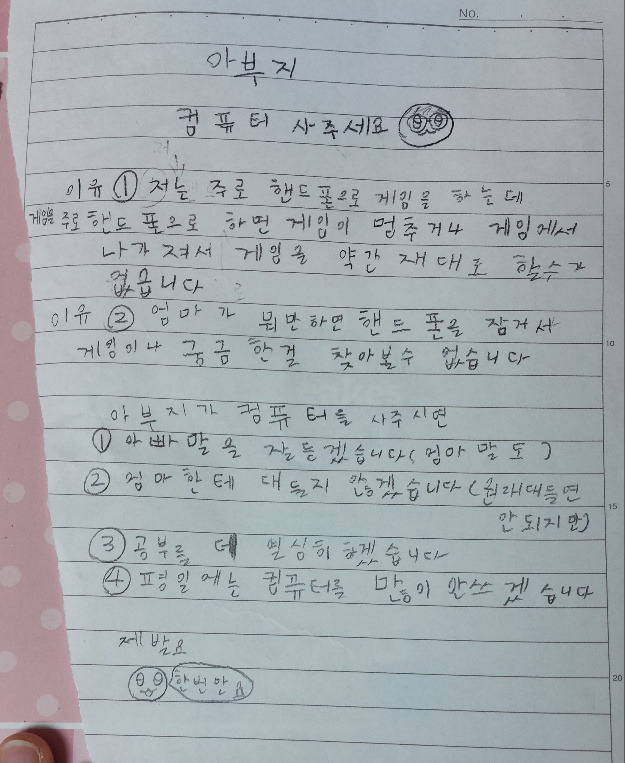 No.
아부지
컴퓨터 사주세요
이유 ① 저는 주로 핸드폰으로 게임을 하는데
게임을 주로 핸드폰으로 하면 게임이 멈추거나 게임에서
나가져서 게임을 약간 재대로 할수가
없습니다
이유 ② 엄마가 뭐만하면 핸드폰을 잠거서
게임이나 궁금한걸 찾아볼수 없습니다
아부지가 컴퓨터를 사주시면
① 아빠말을 잘듣겠습니다(엄마말도)
② 엄마한테 대들지 않겠습니다(원래대들면
안되지만)
③ 공부를 더 열심히 하겠습니다
④ 평일에는 컴퓨터를 만이 안쓰겠습니다
제발요
한번만요
5
10
15
20